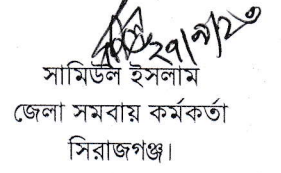 ২৭/৯/২৩
সামিউল ইসলাম
জেলা সমবায় কর্মকর্তা
সিরাজগঞ্জ।